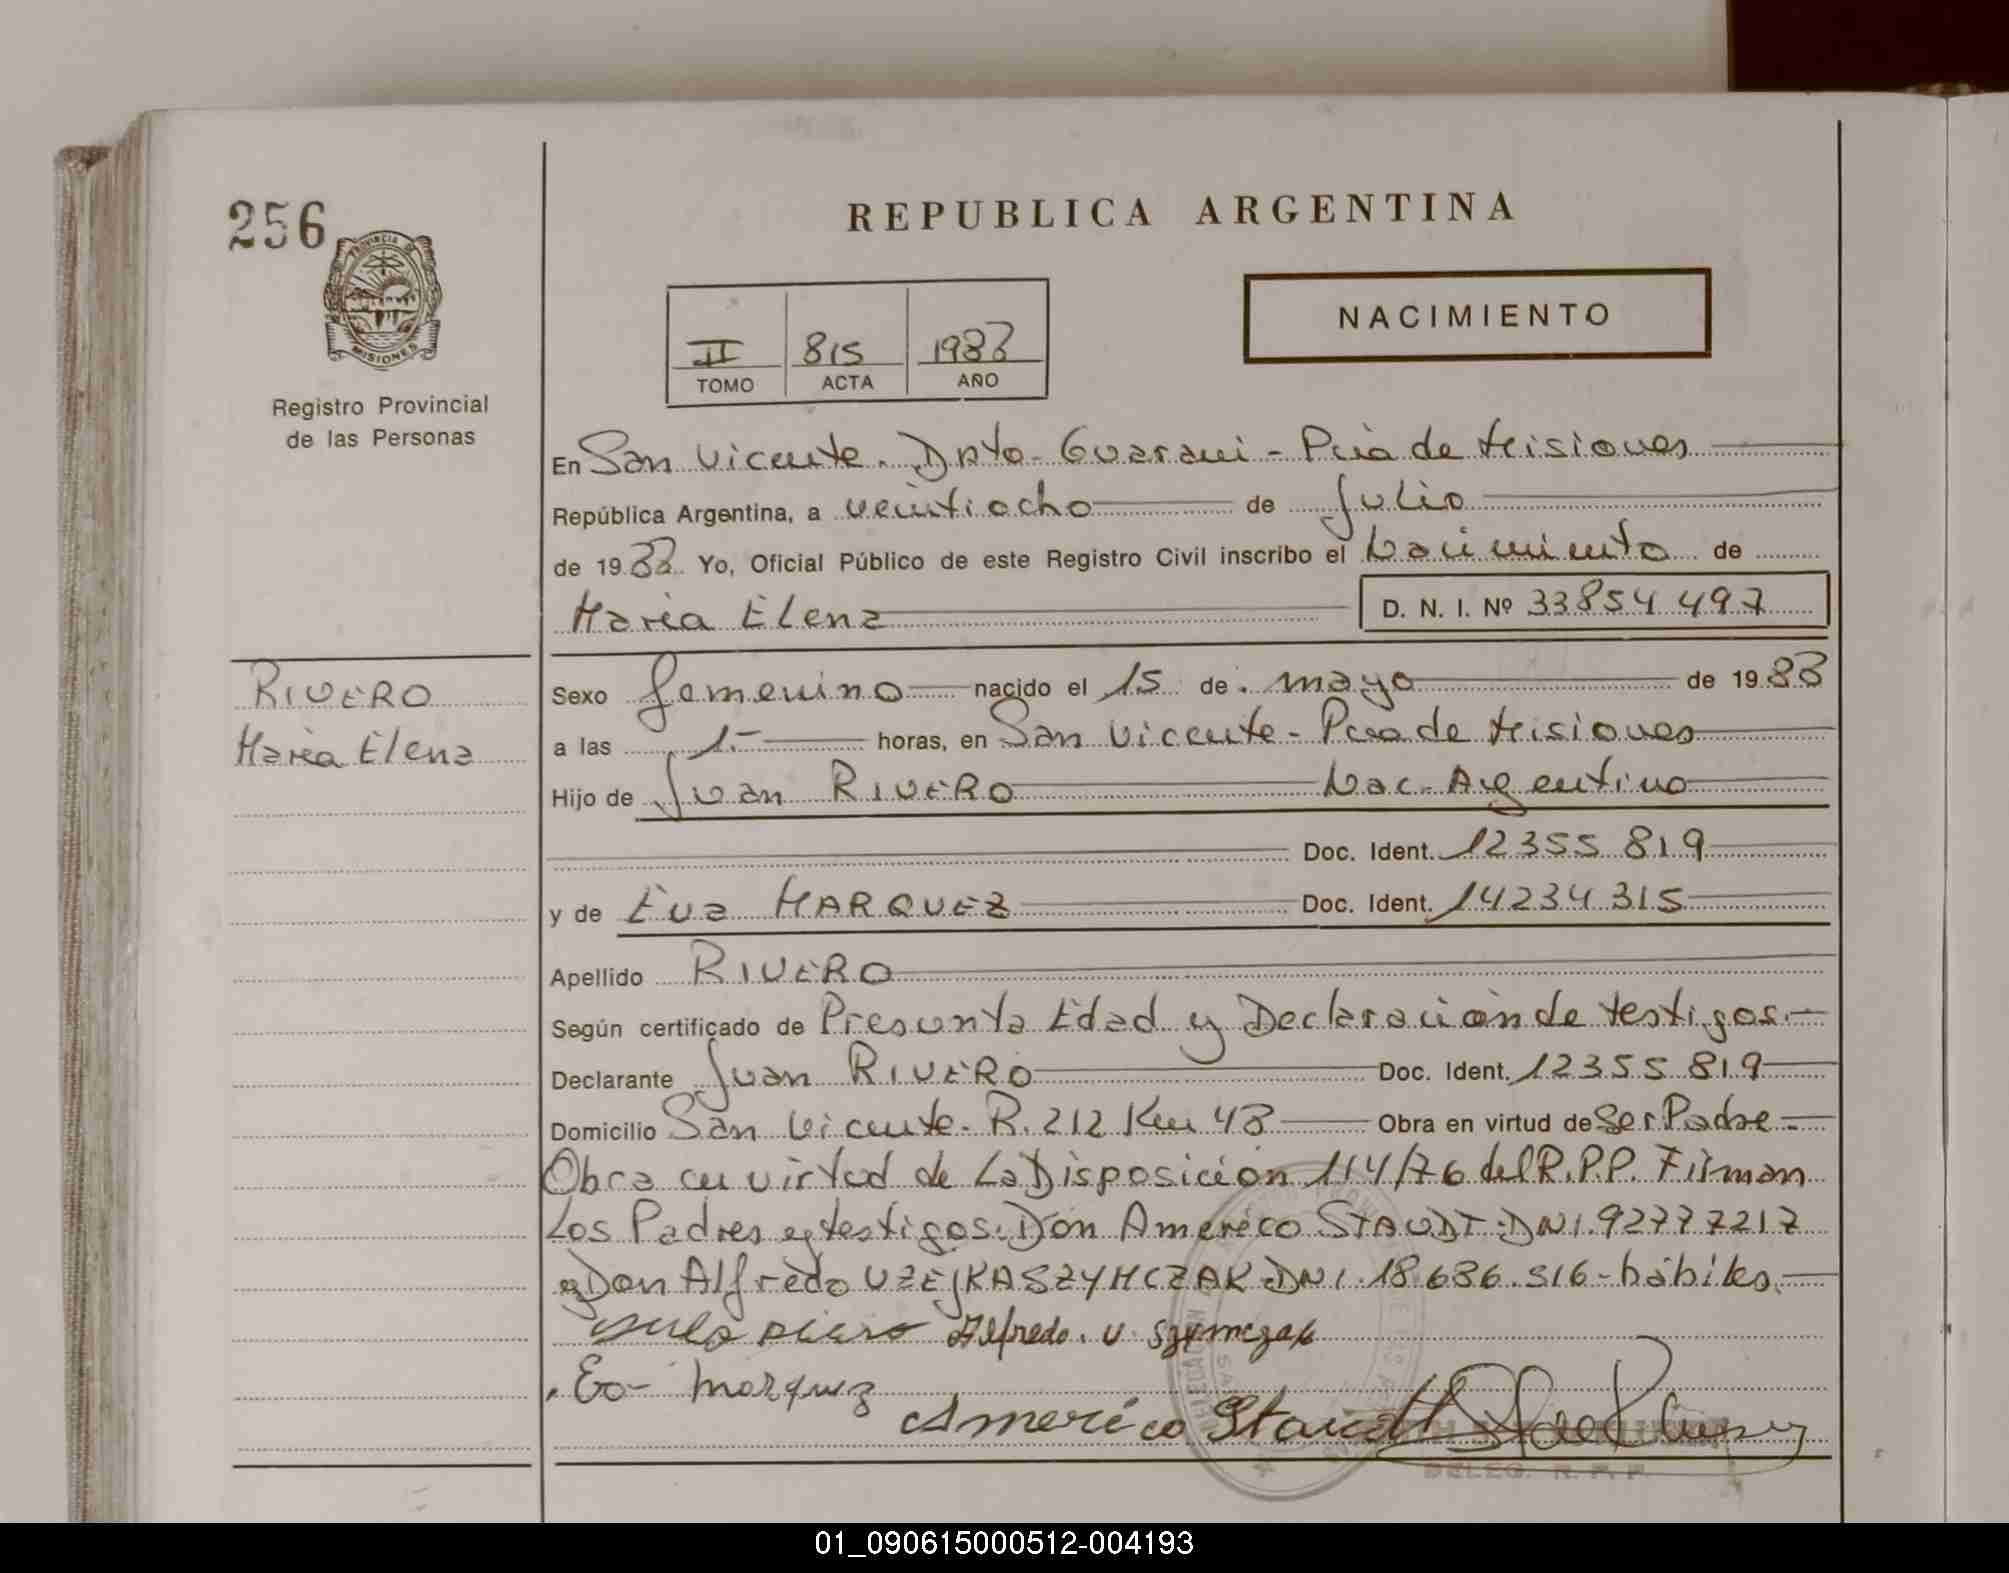 256
REPUBLICA ARGENTINA
PROVINCIA DE
MISIONES
Registro Provincial
de las Personas
II 815 1988
TOMO ACTA AÑO
NACIMIENTO
En San Vicente. Dpto- Guarani - Pcia de Misiones
República Argentina, a veintiocho de Julio
de 1988 Yo, Oficial Público de este Registro Civil inscribo el Nacimiento de
Maria Elena D. N. I. Nº 33854497
RIVERO
Maria Elena
Sexo femenino nacido el 15 de mayo de 1988
a las 1.- horas, en San Vicente - Pcia de Misiones
Hijo de Juan RIVERO Nac. Argentino
Doc. Ident. 12355 819
y de Eva MARQUEZ Doc. Ident. 14234315
Apellido RIVERO
Según certificado de Presunta Edad y Declaración de testigos.-
Declarante Juan RIVERO Doc. Ident. 12355 819
Domicilio San Vicente - R. 212 Km 48 Obra en virtud de Ser Padre.-
Obra en virtud de La Disposición 114/76 del R.P.P. Firman
Los Padres y testigos: Don Americo STAUDT - DNI. 92777217
y Don Alfredo UZEJKA SZYMCZAK DNI. 18.686.516 - hábiles.-
Alfredo. U. Szymczak
Eva Marquez
Americo Staudt
DELEG. R. P. P.
01_090615000512-004193